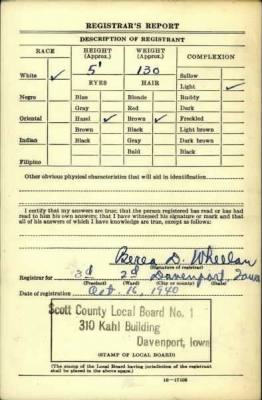 REGISTRAR'S REPORT
DESCRIPTION OF REGISTRANT
RACE HEIGHT (Approx.) WEIGHT (Approx.) COMPLEXION
5' 130 Sallow
White ✓ EYES HAIR Light ✓
Negro Blue Blonde Ruddy
Gray Red Dark
Oriental Hazel ✓ Brown ✓ Freckled
Brown Black Light brown
Indian Black Gray Dark brown
Bald Black
Filipino
Other obvious physical characteristics that will aid in identification
I certify that my answers are true; that the person registered has read or has had
read to him his own answers; that I have witnessed his signature or mark and that
all of his answers of which I have knowledge are true, except as follows:
Berea D. Wheelan
(Signature of registrar)
Registrar for 3d 2d Davenport, Iowa
(Precinct) (Ward) (City or county) (State)
Date of registration Oct. 16, 1940
Scott County Local Board No. 1
310 Kahl Building
Davenport, Iowa
(STAMP OF LOCAL BOARD)
(The stamp of the Local Board having jurisdiction of the registrant
shall be placed in the above space.)